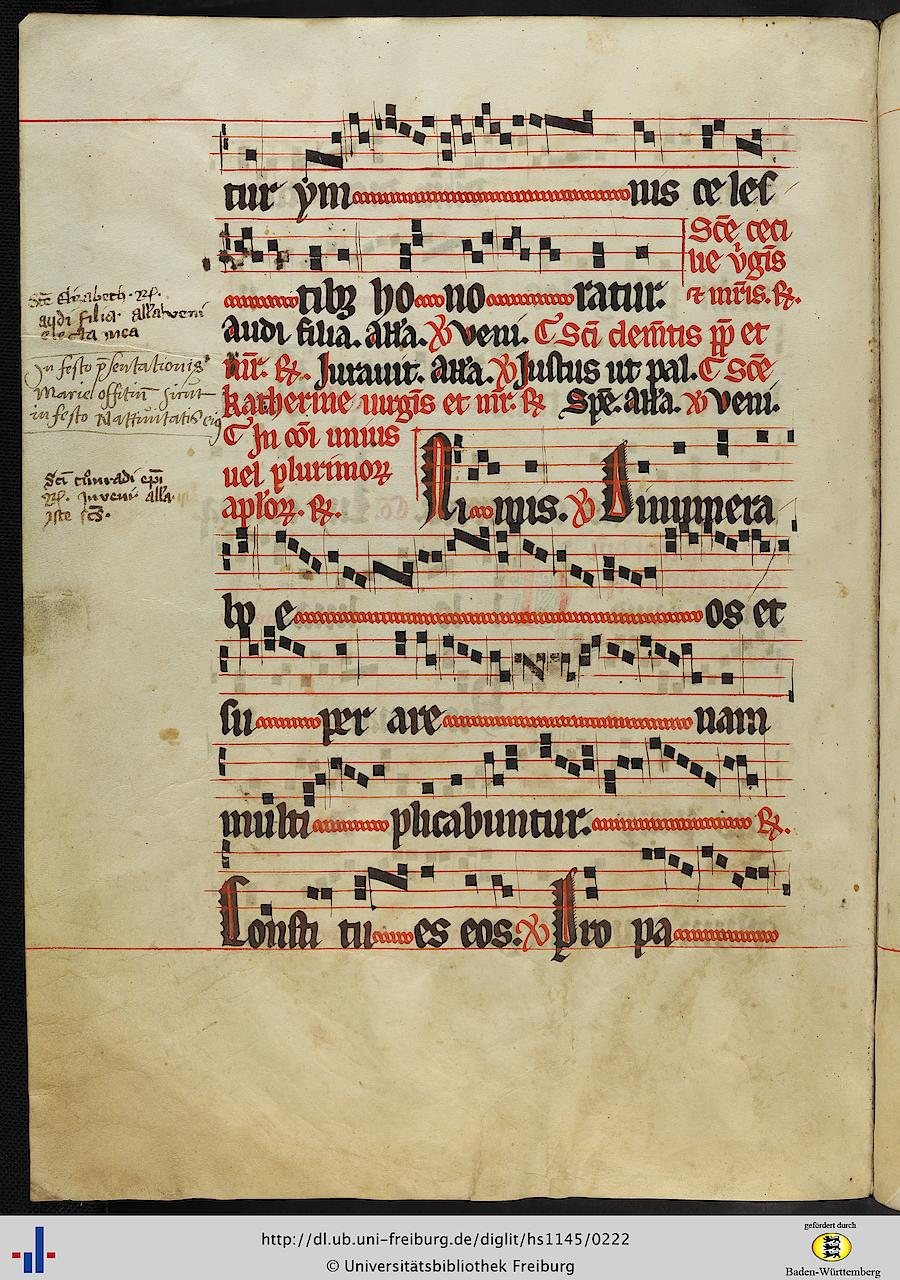 tur ym nis ce les
Sce ceci
lie vgis
tibꝫ ho no ratur.
⁊ mris. ℟.
audi filia. alla. ℣ veni. Sci clemtis pp et
mr. ℟. Jurauit. alla. ℣ Justus ut pal. Sce
katherine uirgis et mr. ℟ Spe. alla. ℣ veni.
In coi unius
uel plurimoꝝ
aploꝝ. ℟.
Ni mis. ℣ Dinumera
bo e os et
su per are nam
multi plicabuntur. ℟.
Consti tu es eos. ℣ Pro pa
Sce Elizabeth. ℟.
audi filia. alla veni
electa mea
In festo psentationis
Marie officiu sicut
in festo Nattiuitatis eiꝰ
Sci cunradi epi
℟. Inveni alla
Iste sc̄s.
http://dl.ub.uni-freiburg.de/diglit/hs1145/0222
© Universitätsbibliothek Freiburg
gefördert durch
Baden-Württemberg